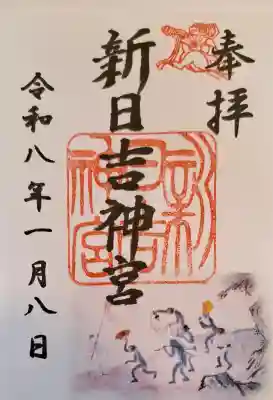 奉拝
新日吉神宮
令和八年一月八日